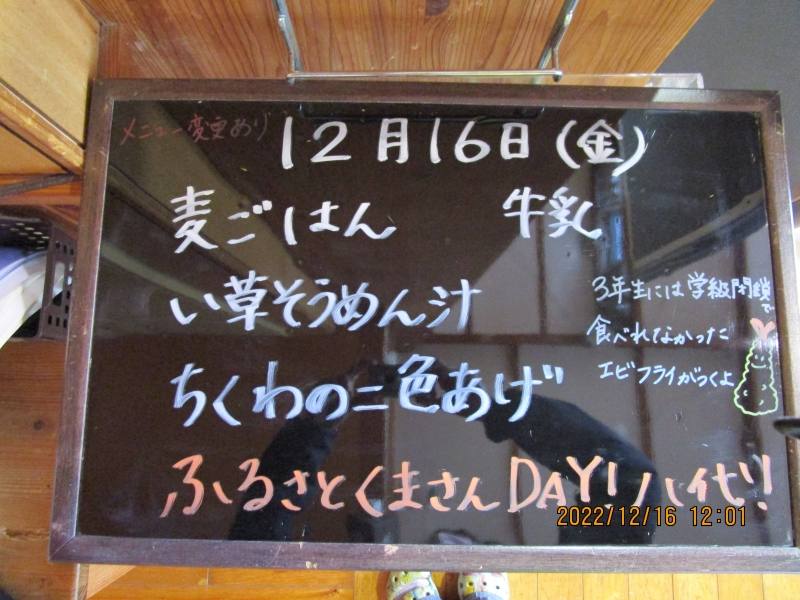 メニュー変更あり
12月16日(金)
麦ごはん 牛乳
い草そうめん汁
ちくわの二色あげ
3年生には学級閉鎖で
食べれてなかった
エビフライがつくよ
ふるさとくまさんDAY!八代!
2022/12/16 12:01